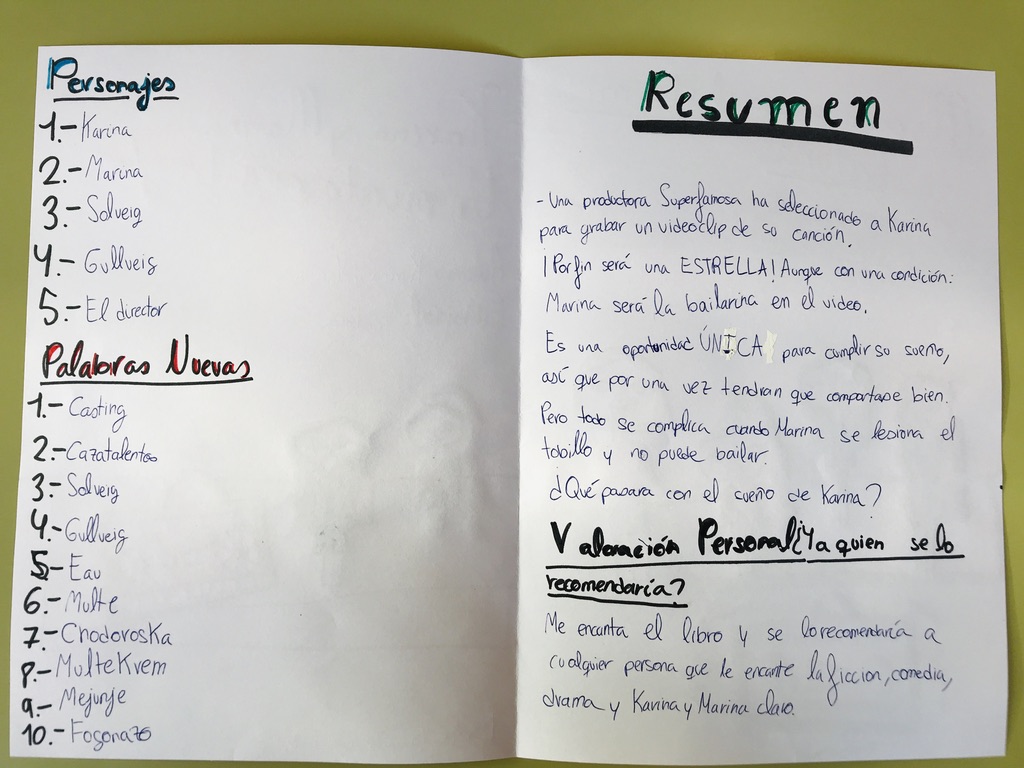 Personajes
1.- Karina
2.- Marina
3.- Solveig
4.- Gullveig
5.- El director
Palabras Nuevas
1.- Casting
2.- Cazatalentos
3.- Solveig
4.- Gullveig
5- Eau
6.- Multe
7.- Chodoroska
8.- MulteKrem
9.- Mejunje
10.- Fogonazo
Resumen
- Una productora Superfamosa ha seleccionado a Karina
para grabar un videoclip de su canción.
¡Por fin será una ESTRELLA! Aunque con una condición:
Marina será la bailarina en el video.
Es una oportunidad ÚNICA para cumplir su sueño,
así que por una vez tendran que comportase bien.
Pero todo se complica cuando Marina se lesiona el
tobillo y no puede bailar.
¿Qué pasara con el sueño de Karina?
Valoración Personal ¿Y a quien se lo
recomendaría?
Me encanta el libro y se lo recomendaría a
cualquier persona que le encante la ficcion, comedia,
drama y Karina y Marina claro.